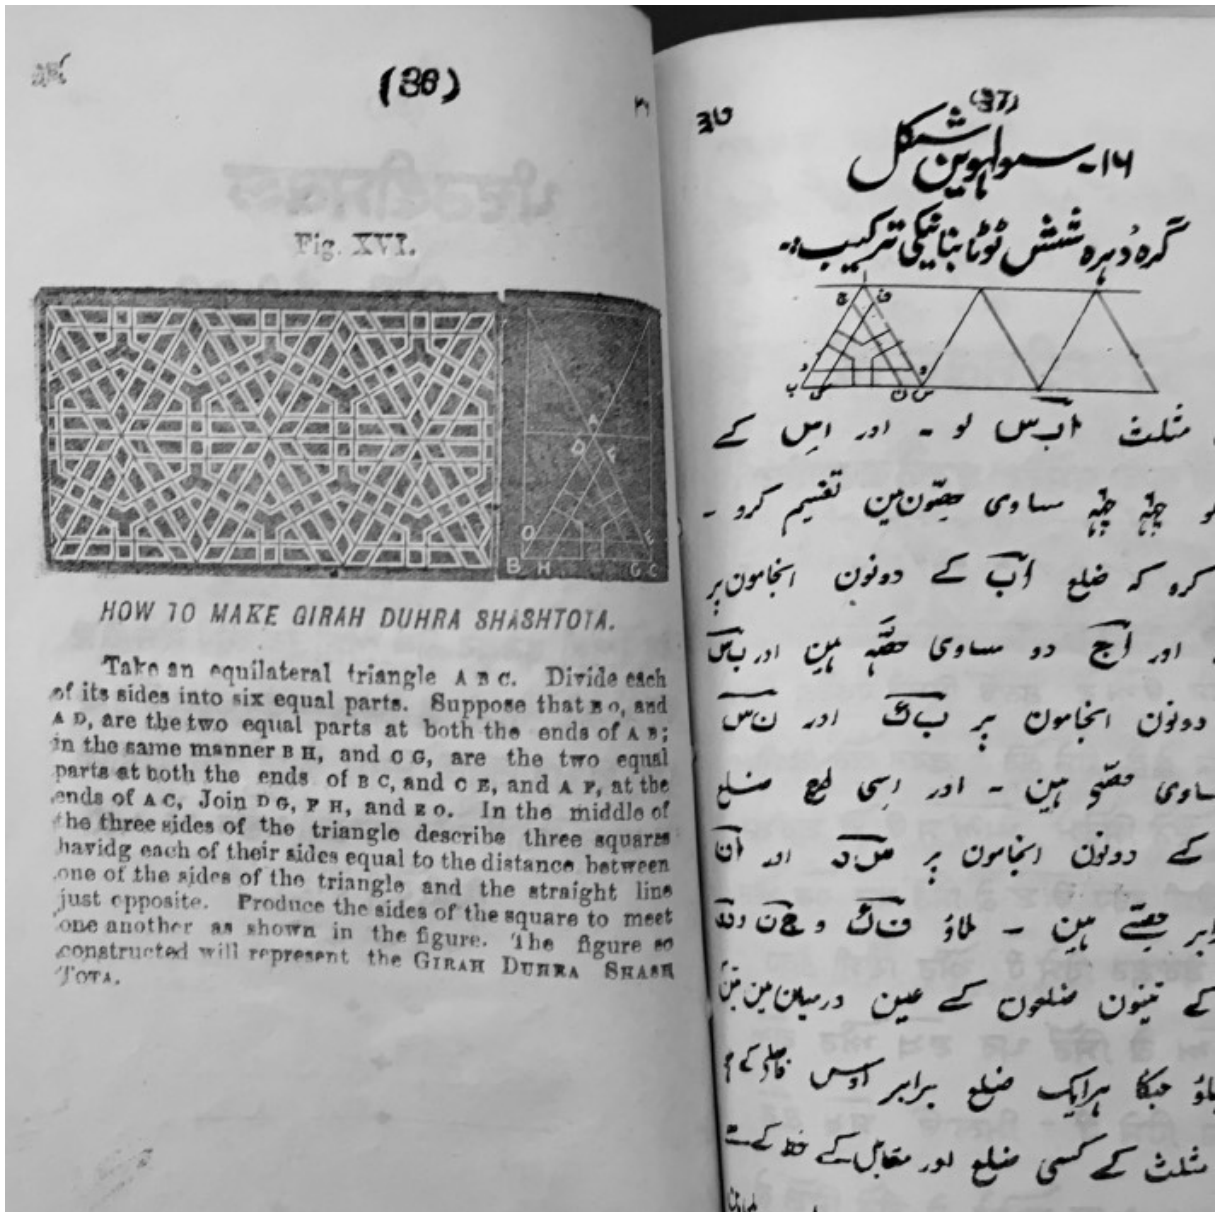 (36)
۳۶
Fig. XVI.
A
D F
O E
B H G C
HOW TO MAKE GIRAH DUHRA SHASHTOTA.
Take an equilateral triangle A B C. Divide each
of its sides into six equal parts. Suppose that B O, and
A D, are the two equal parts at both the ends of A B;
in the same manner B H, and C G, are the two equal
parts at both the ends of B C, and C E, and A F, at the
ends of A C, Join D G, F H, and E O. In the middle of
the three sides of the triangle describe three squares
havidg each of their sides equal to the distance between
one of the sides of the triangle and the straight line
just opposite. Produce the sides of the square to meet
one another as shown in the figure. The figure so
constructed will represent the GIRAH DUHRA SHASH
TOTA.
(37)
੩੭
۱۶۔ سولہوین شکل
گرہ دُہرہ شش ٹوٹا بنانیکی ترکیب:۔
مثلث اب س لو ۔ اور اس کے
چھہ چھہ مساوی حصّون مین تقسیم کرو ۔
کرو کہ ضلع اب کے دونون انجامون پر
اور اج دو مساوی حصّہ ہین اور ب س
دونون انجامون پر ب ک اور ن س
مساوی حصّے ہین ۔ اور اسی طرح ضلع
کے دونون انجامون پر س د اور ان
حصّے ہین ۔ ملاؤ ف ک و ج ن
کے تینون ضلعون کے عین درمیان مین تین
جسکا ہر ایک ضلع برابر اوس فاصلے کے
مثلث کے کسی ضلع اور مقابل کے خط کے